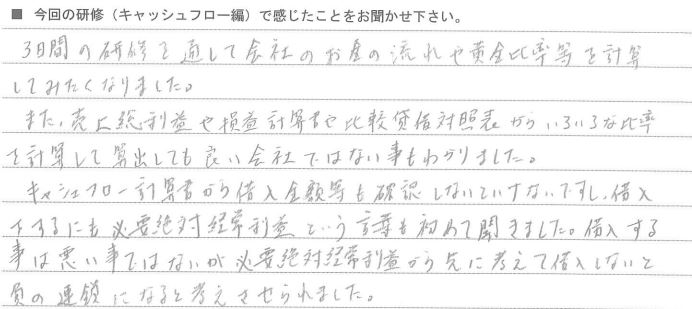 ■ 今回の研修（キャッシュフロー編）で感じたことをお聞かせ下さい。
3日間の研修を通して会社のお金の流れや黄金比率等を計算
してみたくなりました。
また、売上総利益や損益計算書や比較貸借対照表からいろいろな比率
を計算して算出しても良い会社ではない事もわかりました。
キャシュフロー計算書から借入金額等も確認しないといけないですし、借入
するにも必要絶対経常利益という言葉も初めて聞きました。借入する
事は悪い事ではないが必要絶対経常利益から先に考えて借入しないと
負の連鎖になると考えさせられました。